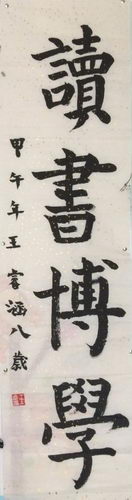 讀書博學
甲午年王言涵八歲